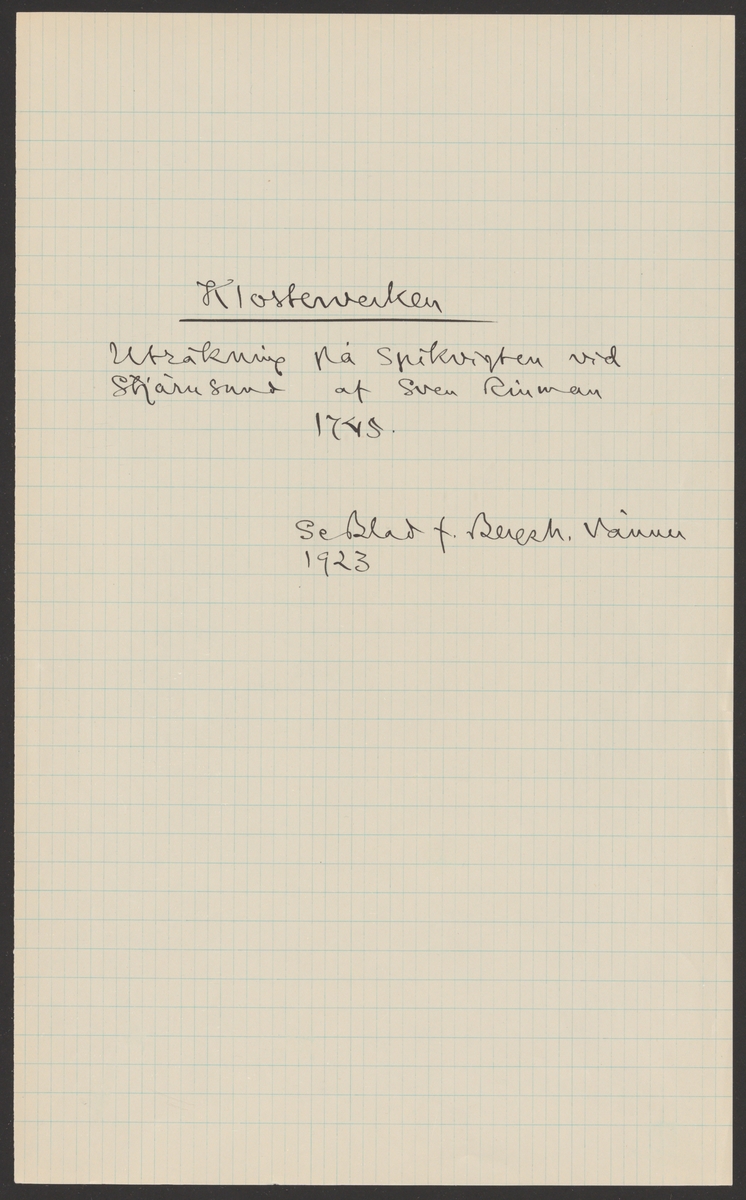 Klosterverken
Uträkning på Spikvigten vid
Stjärnsund af Sven Rinman
1745.
Se Blad f. Bergsh. Vänner
1923